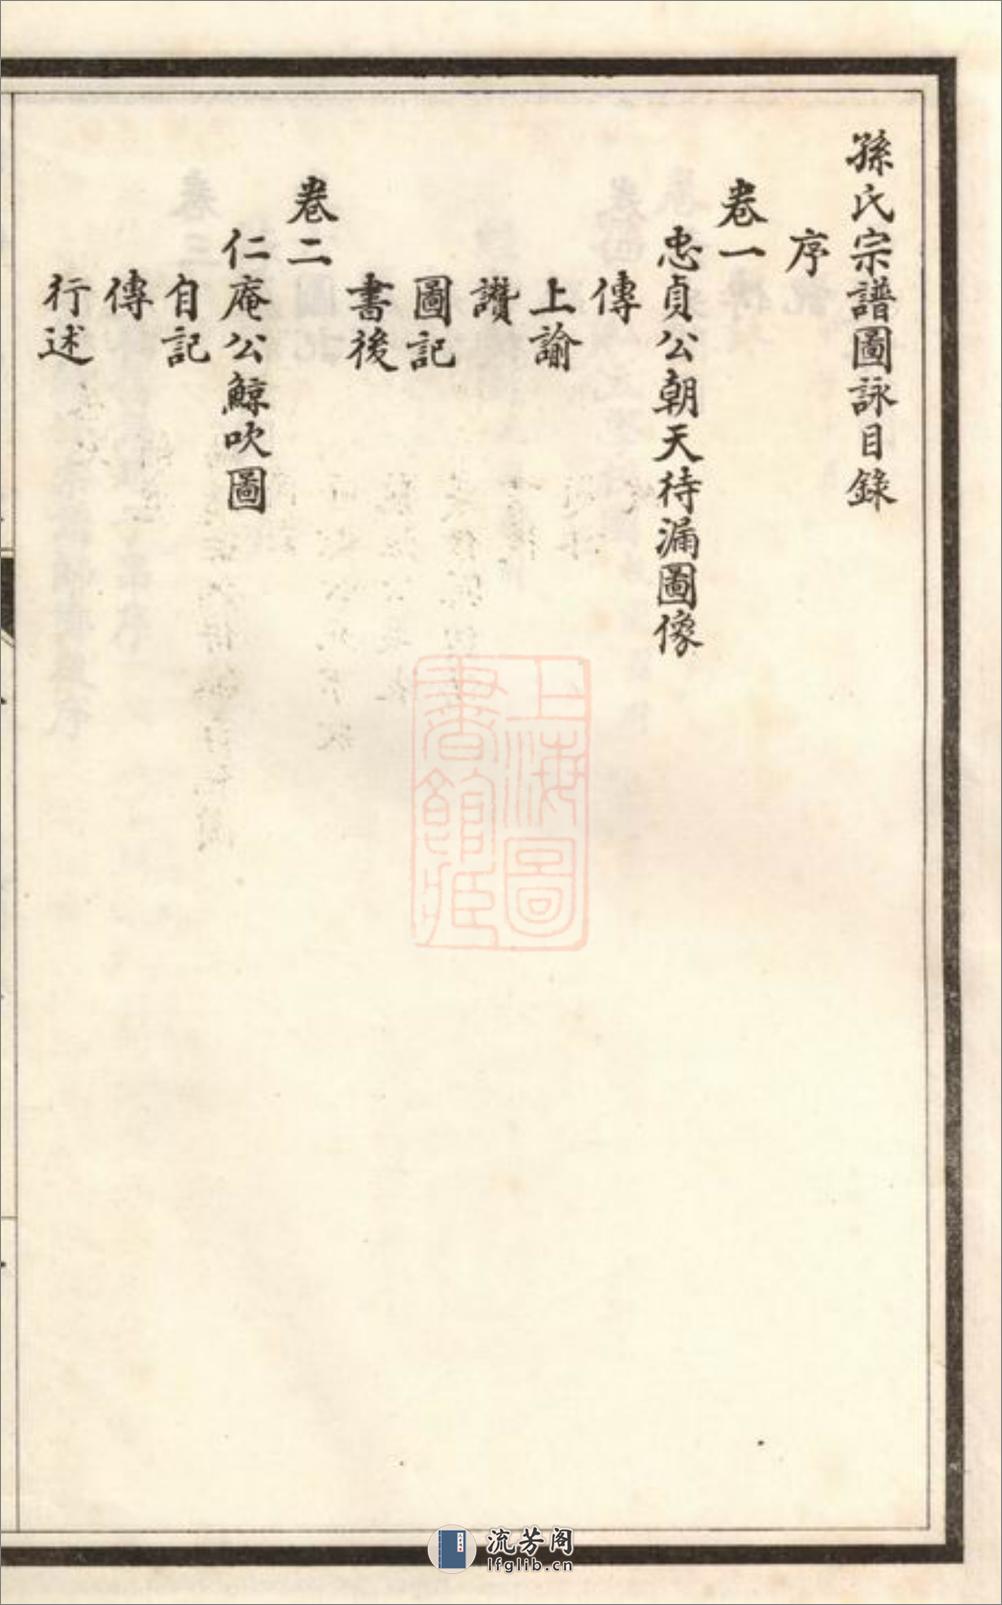 孫氏宗譜圖詠目錄
序
卷一
忠貞公朝天待漏圖像
傳
上諭
讚
圖記
書後
卷二
仁庵公鯨吹圖
自記
傳
行述
上海圖
書館藏
流芳阁
lfglib.cn